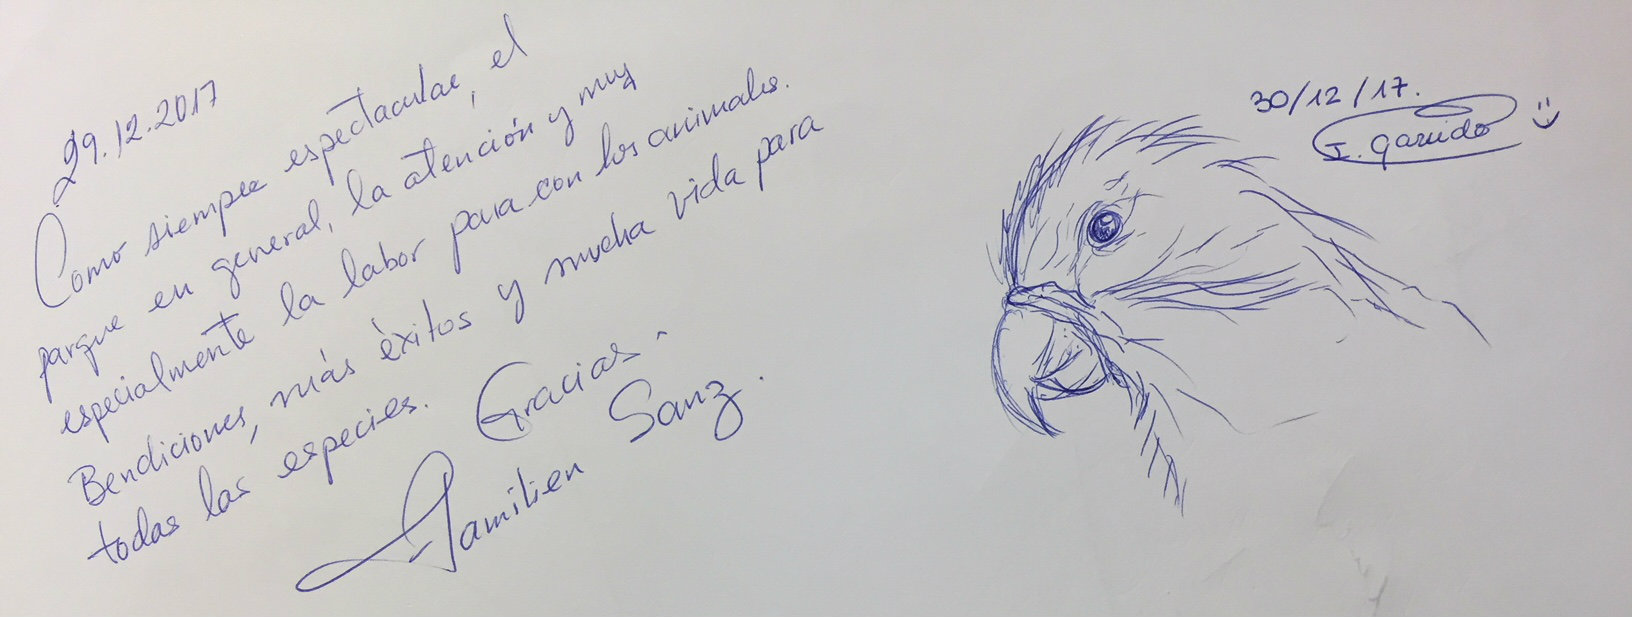 29.12.2017
Como siempre espectacular, el
parque en general, la atención y muy
especialmente la labor para con los animales.
Bendiciones, más éxitos y mucha vida para
todas las especies. Gracias.
Familien Sanz.
30/12/17.
I. Garrido